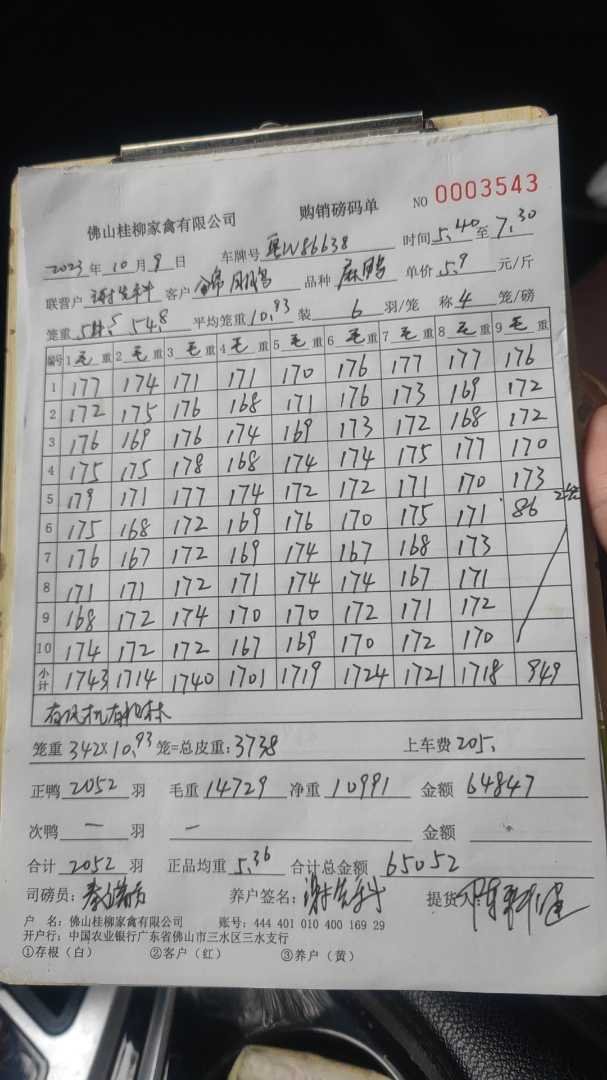 佛山桂柳家禽有限公司 购销磅码单 NO 0003543
2023年10月9日 车牌号 粤W86638 时间 5.40 至 7.30
联营户 客户 品种 麻鸭 单价 5.9 元/斤
笼重 54.8 平均笼重 10.93 装 6 羽/笼 称 4 笼/磅
编号 1 毛 重 2 毛 重 3 毛 重 4 毛 重 5 毛 重 6 毛 重 7 毛 重 8 毛 重 9 毛 重
1 177 174 171 171 170 176 177 177 176
2 172 175 176 168 171 176 173 169 172
3 176 169 176 174 169 173 172 168 172
4 175 175 178 168 174 174 175 177 170
5 179 171 177 174 172 172 171 170 173
6 175 168 172 169 176 170 175 171 86 2笼
7 176 167 172 169 174 167 168 173
8 171 171 172 171 174 174 167 171
9 168 172 174 170 170 172 171 172
10 174 172 172 167 169 170 172 170
小计 1743 1714 1740 1701 1719 1724 1721 1718 949
笼重 342×10.93 笼=总皮重: 3738 上车费 205.
正鸭 2052 羽 毛重 14729 净重 10991 金额 64847
次鸭 — 羽 — 金额
合计 2052 羽 正品均重 5.36 合计总金额 65052
司磅员: 养户签名: 提货
户 名: 佛山桂柳家禽有限公司 账号: 444 401 010 400 169 29
开户行: 中国农业银行广东省佛山市三水区三水支行
①存根（白） ②客户（红） ③养户（黄）